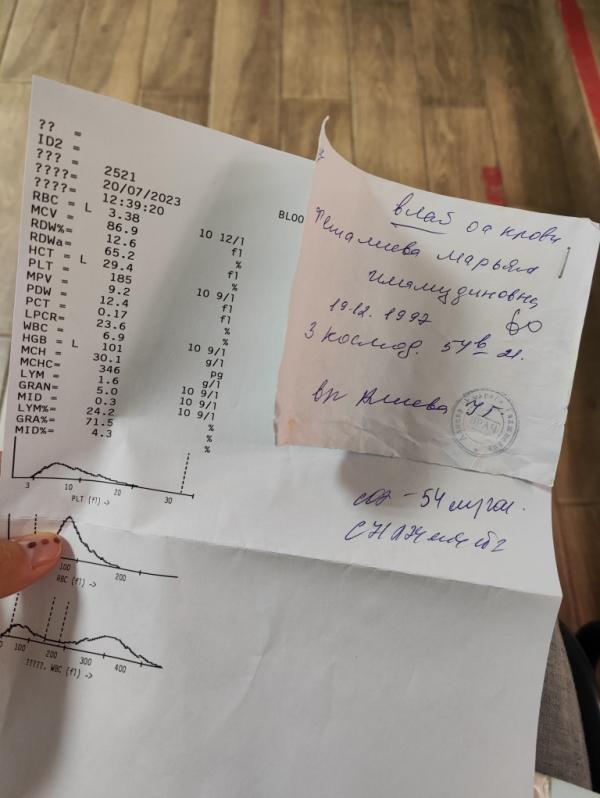 ?? =
ID2 =
??? =
????= 2521
????= 20/07/2023
12:39:20
BLOO
RBC = L 3.38 10 12/l
MCV = 86.9 fl
RDW%= 12.6 %
RDWa= 65.2 fl
HCT = L 29.4 %
PLT = 185 10 9/l
MPV = 9.2 fl
PDW = 12.4 fl
PCT = 0.17 %
LPCR= 23.6 %
WBC = 6.9 10 9/l
HGB = L 101 g/l
MCH = 30.1 pg
MCHC= 346 g/l
LYM = 1.6 10 9/l
GRAN= 5.0 10 9/l
MID = 0.3 10 9/l
LYM%= 24.2 %
GRA%= 71.5 %
MID%= 4.3 %
3 10 20 30
PLT (fl) ->
100 200
RBC (fl) ->
0 100 200 300 400
?????. WBC (fl) ->
в лаб оа крови
Марьям
19.12.1997 60
3 космод. 54в 21.
вр Алиева УГ.
ВРАЧ
соэ - 54 мм/час.